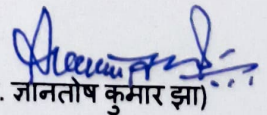 . ज्ञानतोष कुमार झा)